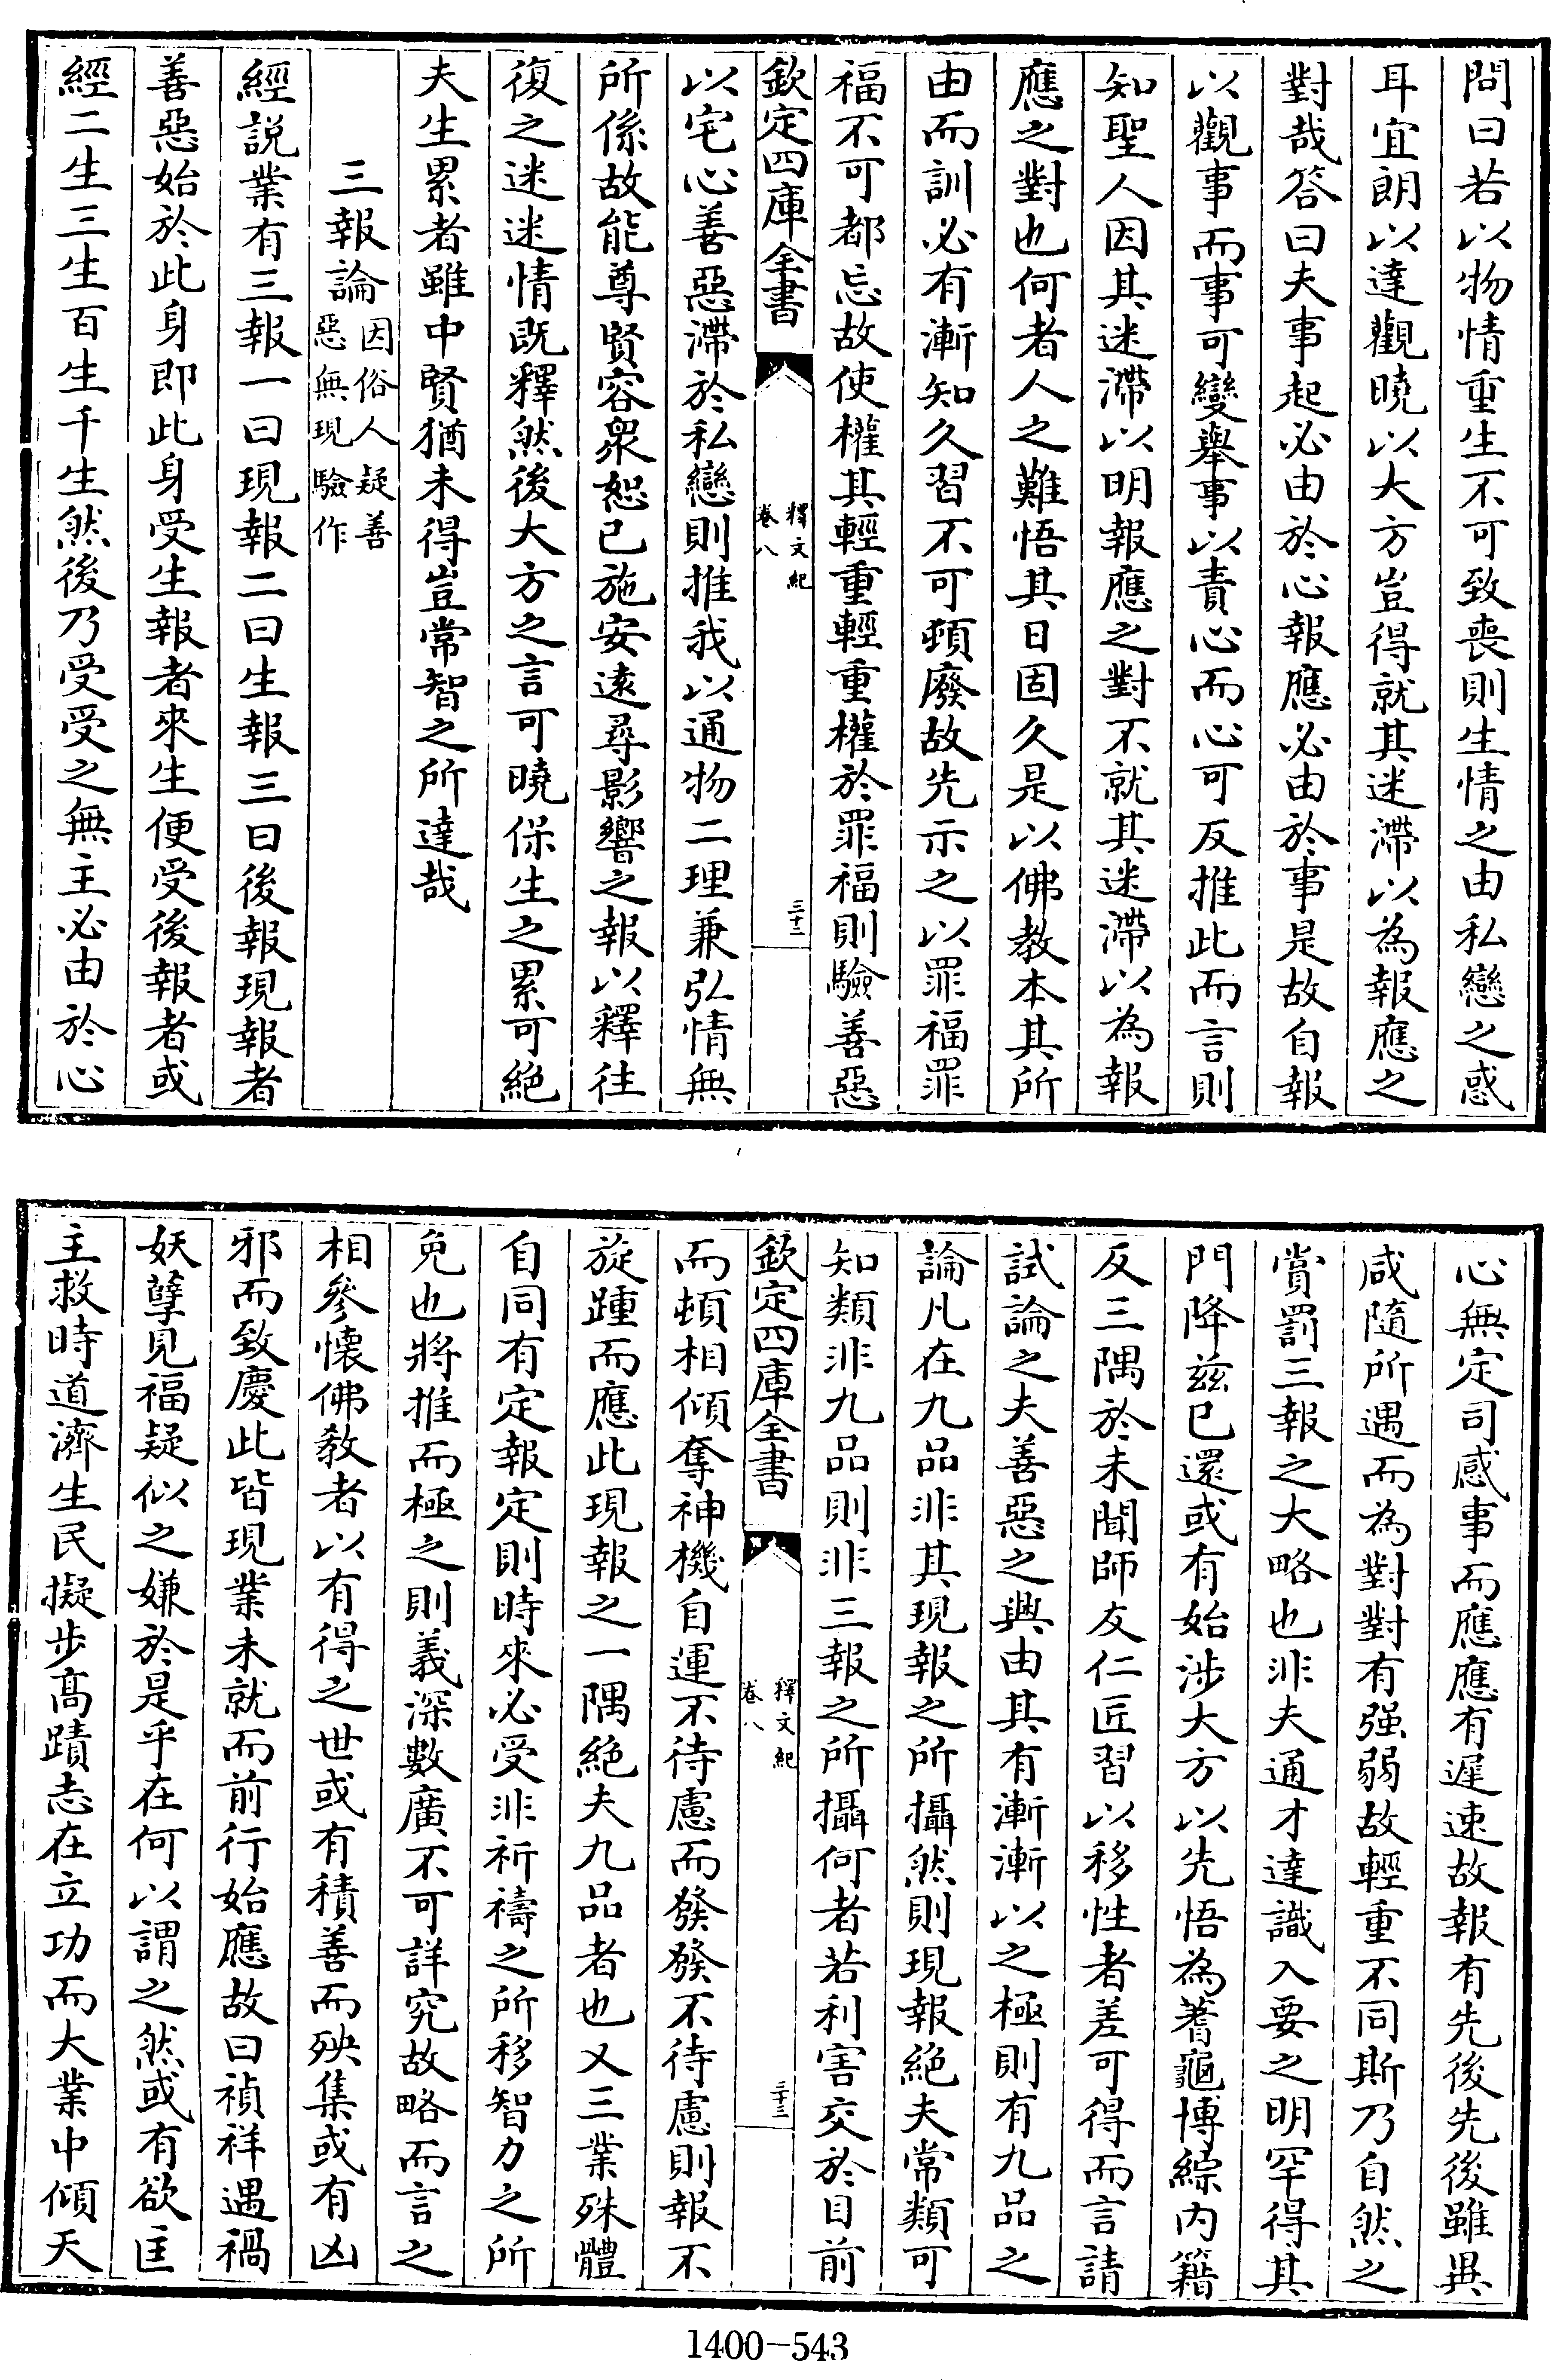 問曰若以物情重生不可致喪則生情之由私戀之惑
耳宜朗以達觀曉以大方豈得就其迷滯以為報應之
對哉答曰夫事起必由於心報應必由於事是故自報
以觀事而事可變舉事以責心而心可反推此而言則
知聖人因其迷滯以明報應之對不就其迷滯以為報
應之對也何者人之難悟其日固久是以佛教本其所
由而訓必有漸知久習不可頓廢故先示之以罪福罪
福不可都忘故使權其輕重輕重權於罪福則驗善惡
欽定四庫全書
釋文紀
卷八
三十二
以宅心善惡滯於私戀則推我以通物二理兼弘情無
所係故能尊賢容衆恕已施安遠尋影響之報以釋往
復之迷迷情既釋然後大方之言可曉保生之累可絶
夫生累者雖中賢猶未得豈常智之所達哉
三報論因俗人疑善
惡無現驗作
經説業有三報一曰現報二曰生報三曰後報現報者
善惡始於此身即此身受生報者來生便受後報者或
經二生三生百生千生然後乃受受之無主必由於心
心無定司感事而應應有遲速故報有先後先後雖異
咸隨所遇而為對對有强弱故輕重不同斯乃自然之
賞罰三報之大略也非夫通才達識入要之明罕得其
門降兹已還或有始涉大方以先悟為蓍龜博綜内籍
反三隅於未聞師友仁匠習以移性者差可得而言請
試論之夫善惡之興由其有漸漸以之極則有九品之
論凡在九品非其現報之所攝然則現報絶夫常類可
知類非九品則非三報之所攝何者若利害交於目前
欽定四庫全書
釋文紀
卷八
三十三
而頓相傾奪神機自運不待慮而發發不待慮則報不
旋踵而應此現報之一隅絶夫九品者也又三業殊體
自同有定報定則時來必受非祈禱之所移智力之所
免也將推而極之則義深數廣不可詳究故略而言之
相參懷佛教者以有得之世或有積善而殃集或有凶
邪而致慶此皆現業未就而前行始應故曰禎祥遇禍
妖孽見福疑似之嫌於是乎在何以謂之然或有欲匡
主救時道濟生民擬步高蹟志在立功而大業中傾天
1400-543